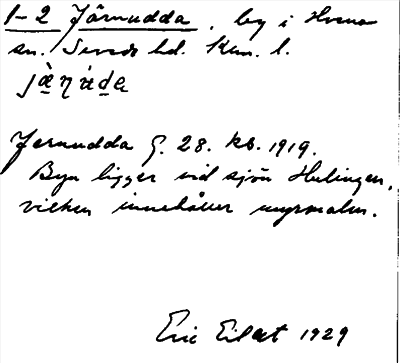 1-2 Järnudda, by i Hvena
sn. Sevede hd. Kalm. l.
Jernudda G. 28. kb. 1919.
Byn ligger vid sjön Hulingen,
vilken innehåller myrmalm.
Eric Eilert 1929